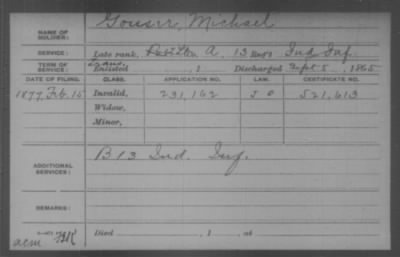 NAME OF SOLDIER: Gouser, Michael
SERVICE: Late rank, A, 13 Reg't Ind Inf.
TERM OF SERVICE: Enlisted , 1 Discharged Sept 5, 1865
DATE OF FILING. CLASS. APPLICATION NO. LAW. CERTIFICATE NO.
1877, Feb. 15 Invalid, 231,162 J O 521,613
Widow,
Minor,
ADDITIONAL SERVICES: B 13 Ind. Inf.
REMARKS:
acm
Died , 1 , at